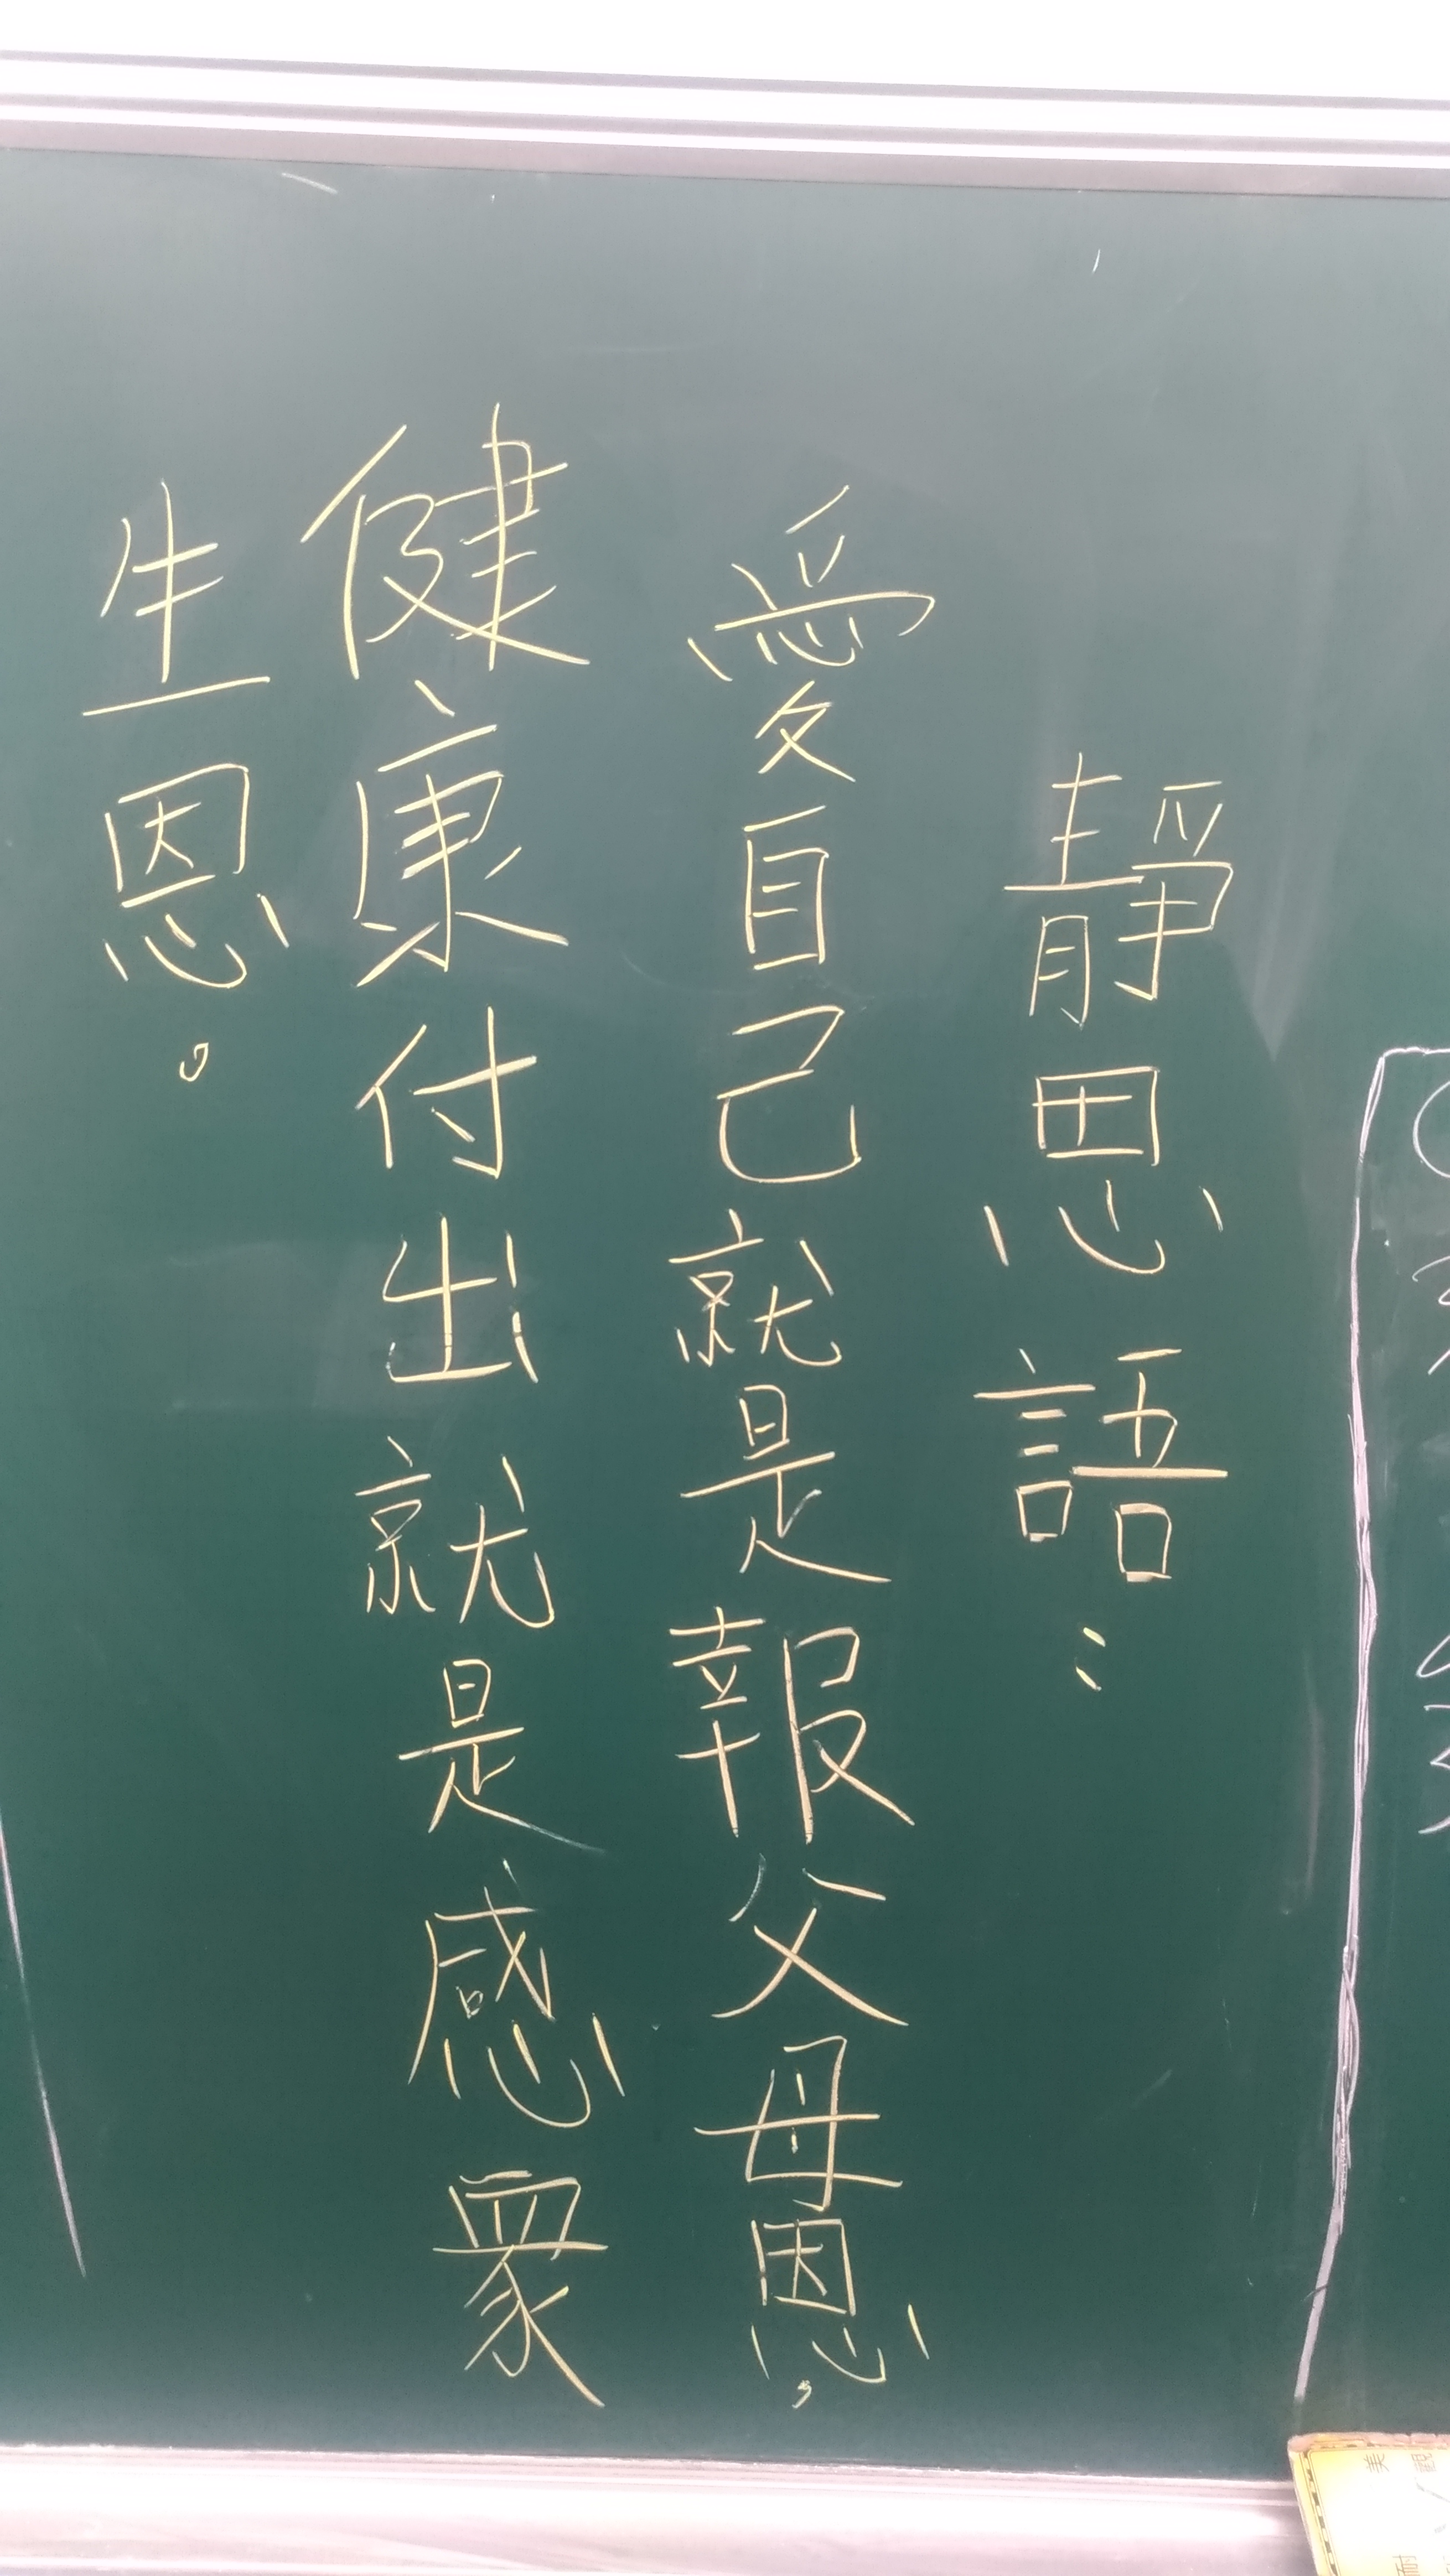 靜思語：
愛自己就是報父母恩，
健康付出就是感眾
生恩。